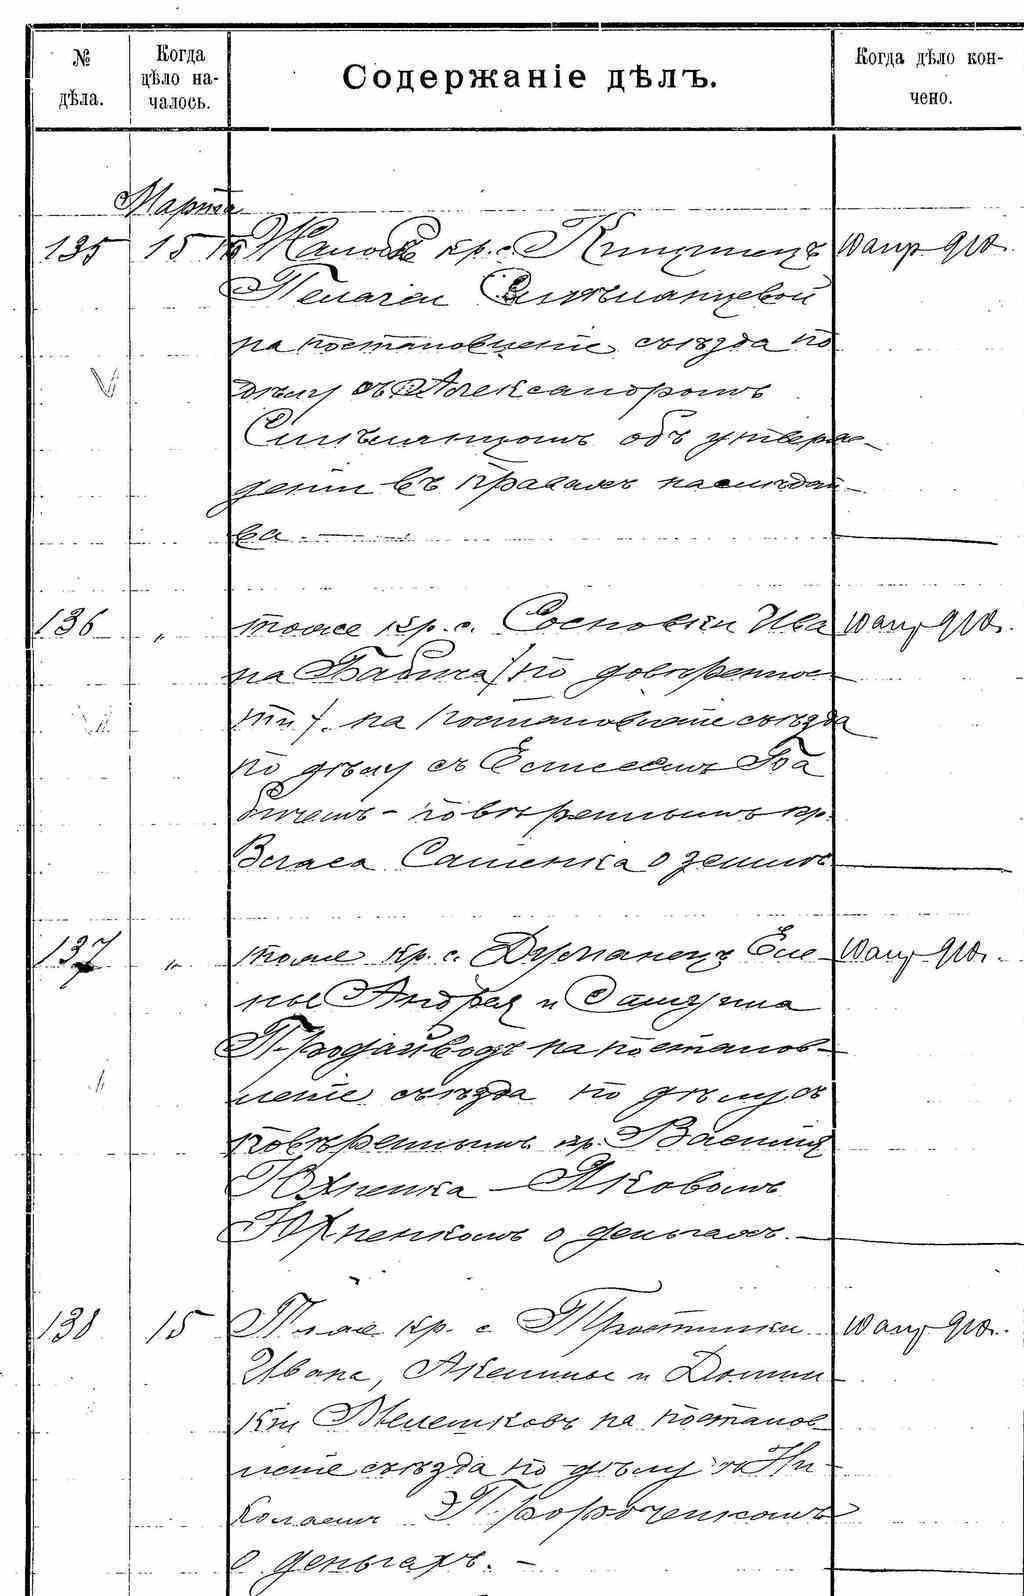 № дѣла.
Когда дѣло началось.
Содержаніе дѣлъ.
Когда дѣло кончено.
Марта
135 15 Жалоба кр. с. 10 апр 910.
Пелагеи
на постановленіе съѣзда по
дѣлу съ Александромъ
объ утверж-
деніи въ правахъ наслѣдст-
ва
136 „ тоже кр. с. Сосновки Ива 10 апр 910.
на Бабича (по довѣреннос
ти). на постановленіе съѣзда
по дѣлу съ Елисеемъ Ба
бичемъ - повѣреннымъ кр.
Власа Сашенка о землѣ
137 „ тоже кр. с. Дурманецъ Еле- 10 апр 910.
ны Андрея и
Продайводъ на постанов-
леніе съѣзда по дѣлу съ
повѣреннымъ кр. Василія
Юхненка - Яковомъ
Юхненкомъ о деньгахъ.
138 15 Тоже кр. с. Тростинки 10 апр 910.
Ивана, Аксиньи и Домни
ки Мелешковъ на постанов
леніе съѣзда по дѣлу съ Ни
колаемъ Пророченкомъ
о деньгахъ.